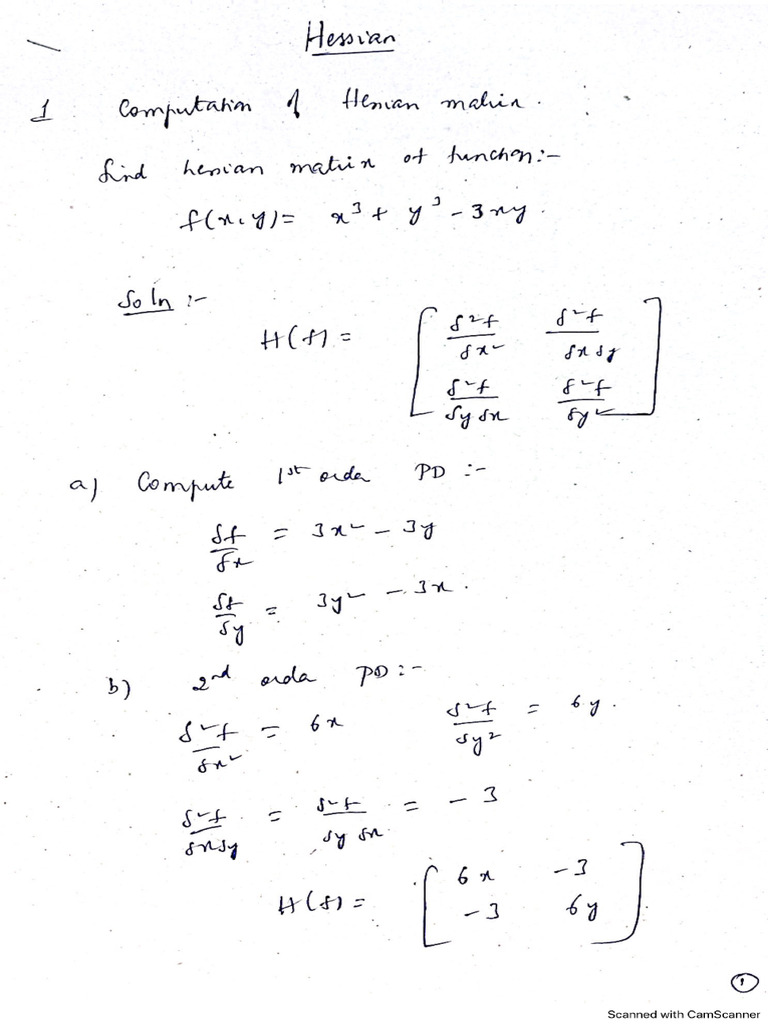 Hessian
1 Computation of Hessian matrix.
find hessian matrix of function:-
f(x,y) = x³ + y³ - 3xy.
Soln :-
H(f) = [ δ²f/δx² δ²f/δxδy
δ²f/δyδx δ²f/δy² ]
a) Compute 1st order PD :-
δf/δx = 3x² - 3y
δf/δy = 3y² - 3x.
b) 2nd order PD :-
δ²f/δx² = 6x δ²f/δy² = 6y.
δ²f/δxδy = δ²f/δyδx = -3
H(f) = [ 6x -3
-3 6y ]
1
Scanned with CamScanner